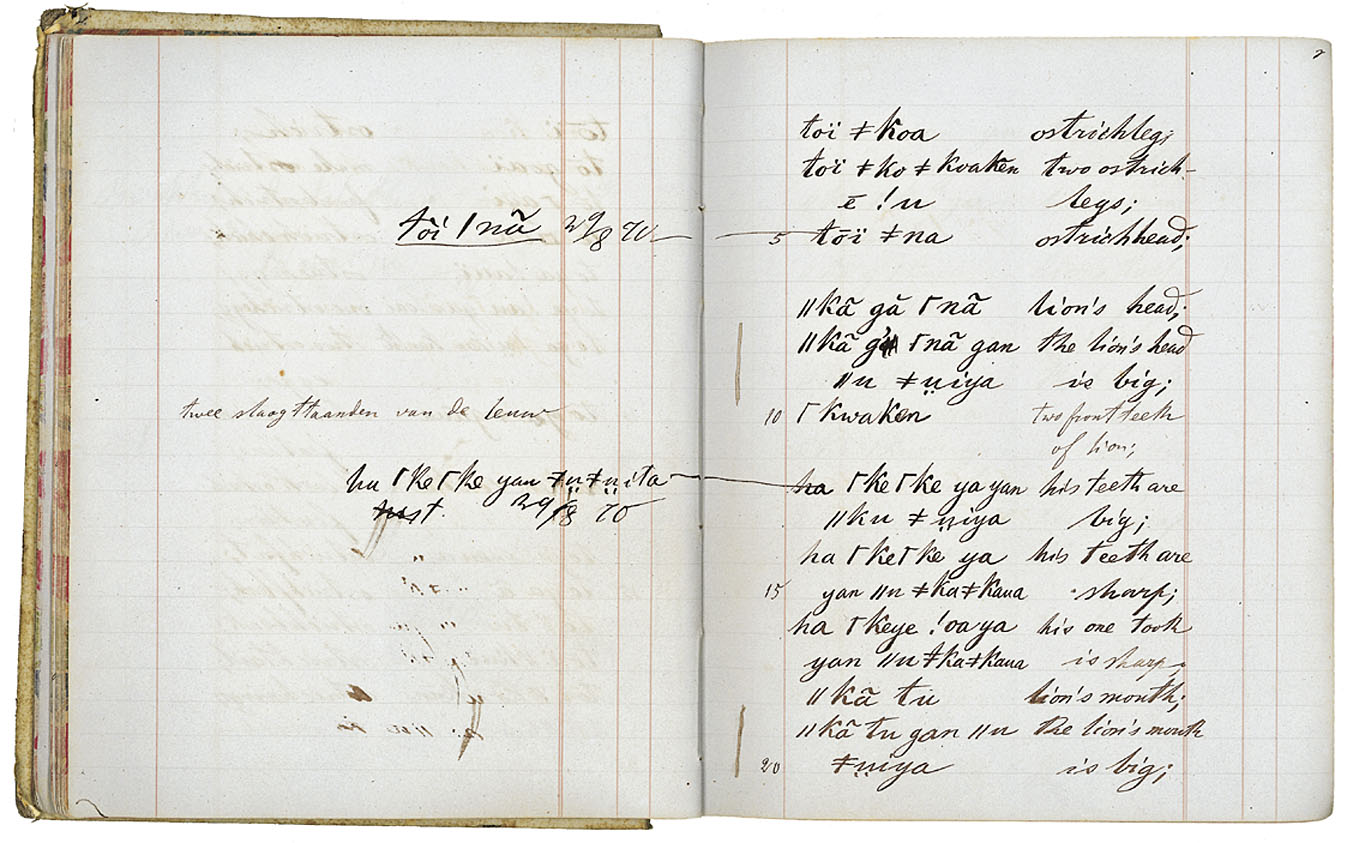 tōï / nã 29/8 70
twee slaagttaanden van de leeuw
ha ſke ſke yan ǂṳ ǂṳita
hist. 29/8 70
toï ǂkoa ostrichleg;
toï ǂko ǂkoaken two ostrich-
ē !u legs;
5 tōï ǂna ostrichhead;
ǁkã gă ſnã lion's head;
ǁkã ſnã gan the lion's head
ǁu ǂṳiya is big;
10 ſkwaken two front teeth
of lion;
ha ſke ſke ya yan his teeth are
ǁku ǂṳiya big;
ha ſke ſke ya his teeth are
15 yan ǁu ǂka ǂkaua sharp;
ha ſkeye !oa ya his one tooth
yan ǁu ǂka ǂkaua is sharp;
ǁkã tu lion's mouth;
ǁkã tu gan ǁu the lion's mouth
20 ǂṳiya is big;